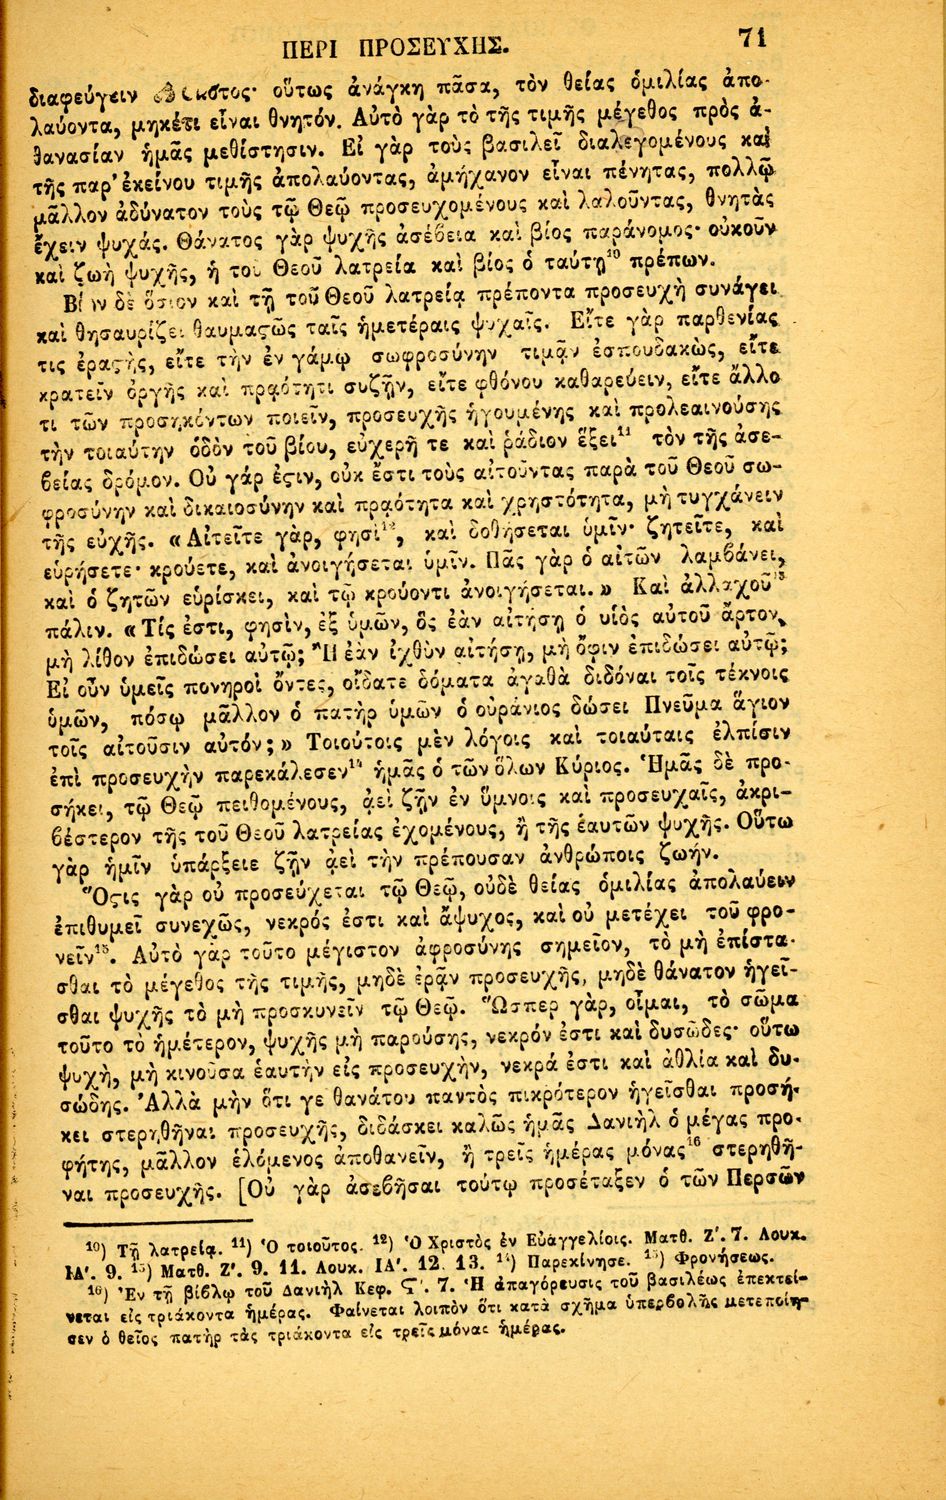 ΠΕΡΙ ΠΡΟΣΕΥΧΗΣ. 71
διαφεύγειν οὕτως ἀνάγκη πᾶσα, τὸν θείας ὁμιλίας ἀπο-
λαύοντα, μηκέτι εἶναι θνητόν. Αὐτὸ γὰρ τὸ τῆς τιμῆς μέγεθος πρὸς ἀ-
θανασίαν ἡμᾶς μεθίστησιν. Εἰ γὰρ τοὺς βασιλεῖ διαλεγομένους καὶ
τῆς παρ' ἐκείνου τιμῆς ἀπολαύοντας, ἀμήχανον εἶναι πένητας, πολλῷ
μᾶλλον ἀδύνατον τοὺς τῷ Θεῷ προσευχομένους καὶ λαλοῦντας, θνητὰς
ἔχειν ψυχάς. Θάνατος γὰρ ψυχῆς ἀσέβεια καὶ βίος παράνομος· οὐκοῦν
καὶ ζωὴ ψυχῆς, ἡ τοῦ Θεοῦ λατρεία καὶ βίος ὁ ταύτῃ¹⁰ πρέπων.
Βίον δὲ ὅσιον καὶ τῇ τοῦ Θεοῦ λατρείᾳ πρέποντα προσευχὴ συνάγει
καὶ θησαυρίζει θαυμαϛῶς ταῖς ἡμετέραις ψυχαῖς. Εἴτε γὰρ παρθενίας
τις ἐραϛής, εἴτε τὴν ἐν γάμῳ σωφροσύνην τιμᾷν ἐσπουδακώς, εἴτε
κρατεῖν ὀργῆς καὶ πρᾳότητι συζῇν, εἴτε φθόνου καθαρεύειν, εἴτε ἄλλο
τι τῶν προσηκόντων ποιεῖν, προσευχῆς ἡγουμένης καὶ προλεαινούσης
τὴν τοιαύτην ὁδὸν τοῦ βίου, εὐχερῆ τε καὶ ῥάδιον ἕξει¹¹ τὸν τῆς ἀσε-
βείας δρόμον. Οὐ γάρ ἐϛιν, οὐκ ἔστι τοὺς αἰτοῦντας παρὰ τοῦ Θεοῦ σω-
φροσύνην καὶ δικαιοσύνην καὶ πρᾳότητα καὶ χρηστότητα, μὴ τυγχάνειν
τῆς εὐχῆς. «Αἰτεῖτε γὰρ, φησὶ¹², καὶ δοθήσεται ὑμῖν· ζητεῖτε, καὶ
εὑρήσετε· κρούετε, καὶ ἀνοιγήσεται ὑμῖν. Πᾶς γὰρ ὁ αἰτῶν λαμβάνει,
καὶ ὁ ζητῶν εὑρίσκει, καὶ τῷ κρούοντι ἀνοιγήσεται.» Καὶ ἀλλαχοῦ¹³
πάλιν. «Τίς ἐστι, φησὶν, ἐξ ὑμῶν, ὃς ἐὰν αἰτήσῃ ὁ υἱὸς αὐτοῦ ἄρτον,
μὴ λίθον ἐπιδώσει αὐτῷ; Ἢ ἐὰν ἰχθὺν αἰτήσῃ, μὴ ὄφιν ἐπιδώσει αὐτῷ;
Εἰ οὖν ὑμεῖς πονηροὶ ὄντες, οἴδατε δόματα ἀγαθὰ διδόναι τοῖς τέκνοις
ὑμῶν, πόσῳ μᾶλλον ὁ πατὴρ ὑμῶν ὁ οὐράνιος δώσει Πνεῦμα ἅγιον
τοῖς αἰτοῦσιν αὐτόν;» Τοιούτοις μὲν λόγοις καὶ τοιαύταις ἐλπίσιν
ἐπὶ προσευχὴν παρεκάλεσεν¹⁴ ἡμᾶς ὁ τῶν ὅλων Κύριος. Ἡμᾶς δὲ προ-
σήκει, τῷ Θεῷ πειθομένους, ἀεὶ ζῇν ἐν ὕμνοις καὶ προσευχαῖς, ἀκρι-
βέστερον τῆς τοῦ Θεοῦ λατρείας ἐχομένους, ἢ τῆς ἑαυτῶν ψυχῆς. Οὕτω
γὰρ ἡμῖν ὑπάρξειε ζῇν ἀεὶ τὴν πρέπουσαν ἀνθρώποις ζωήν.
Ὅϛις γὰρ οὐ προσεύχεται τῷ Θεῷ, οὐδὲ θείας ὁμιλίας ἀπολαύειν
ἐπιθυμεῖ συνεχῶς, νεκρός ἐστι καὶ ἄψυχος, καὶ οὐ μετέχει τοῦ φρο-
νεῖν¹⁵. Αὐτὸ γὰρ τοῦτο μέγιστον ἀφροσύνης σημεῖον, τὸ μὴ ἐπίστα-
σθαι τὸ μέγεθος τῆς τιμῆς, μηδὲ ἐρᾷν προσευχῆς, μηδὲ θάνατον ἡγεῖ-
σθαι ψυχῆς τὸ μὴ προσκυνεῖν τῷ Θεῷ. Ὥσπερ γὰρ, οἶμαι, τὸ σῶμα
τοῦτο τὸ ἡμέτερον, ψυχῆς μὴ παρούσης, νεκρόν ἐστι καὶ δυσῶδες· οὕτω
ψυχὴ, μὴ κινοῦσα ἑαυτὴν εἰς προσευχὴν, νεκρά ἐστι καὶ ἀθλία καὶ δυ-
σώδης. Ἀλλὰ μὴν ὅτι γε θανάτου παντὸς πικρότερον ἡγεῖσθαι προσή-
κει στερηθῆναι προσευχῆς, διδάσκει καλῶς ἡμᾶς Δανιὴλ ὁ μέγας προ-
φήτης, μᾶλλον ἑλόμενος ἀποθανεῖν, ἢ τρεῖς ἡμέρας μόνας¹⁶ στερηθῆ-
ναι προσευχῆς. [Οὐ γὰρ ἀσεβῆσαι τούτῳ προσέταξεν ὁ τῶν Περσῶν
¹⁰) Τῇ λατρείᾳ. ¹¹) Ὁ τοιοῦτος. ¹²) Ὁ Χριστὸς ἐν Εὐαγγελίοις. Ματθ. Ζ'. 7. Λουκ.
ΙΑ'. 9. ¹³) Ματθ. Ζ'. 9. 11. Λουκ. ΙΑ'. 12. 13. ¹⁴) Παρεκίνησε. ¹⁵) Φρονήσεως.
¹⁶) Ἐν τῇ βίβλῳ τοῦ Δανιὴλ Κεφ. Ϛ'. 7. Ἡ ἀπαγόρευσις τοῦ βασιλέως ἐπεκτεί-
νεται εἰς τριάκοντα ἡμέρας. Φαίνεται λοιπὸν ὅτι κατὰ σχῆμα ὑπερβολῆς μετεποίη-
σεν ὁ θεῖος πατὴρ τὰς τριάκοντα εἰς τρεῖς μόνας ἡμέρας.